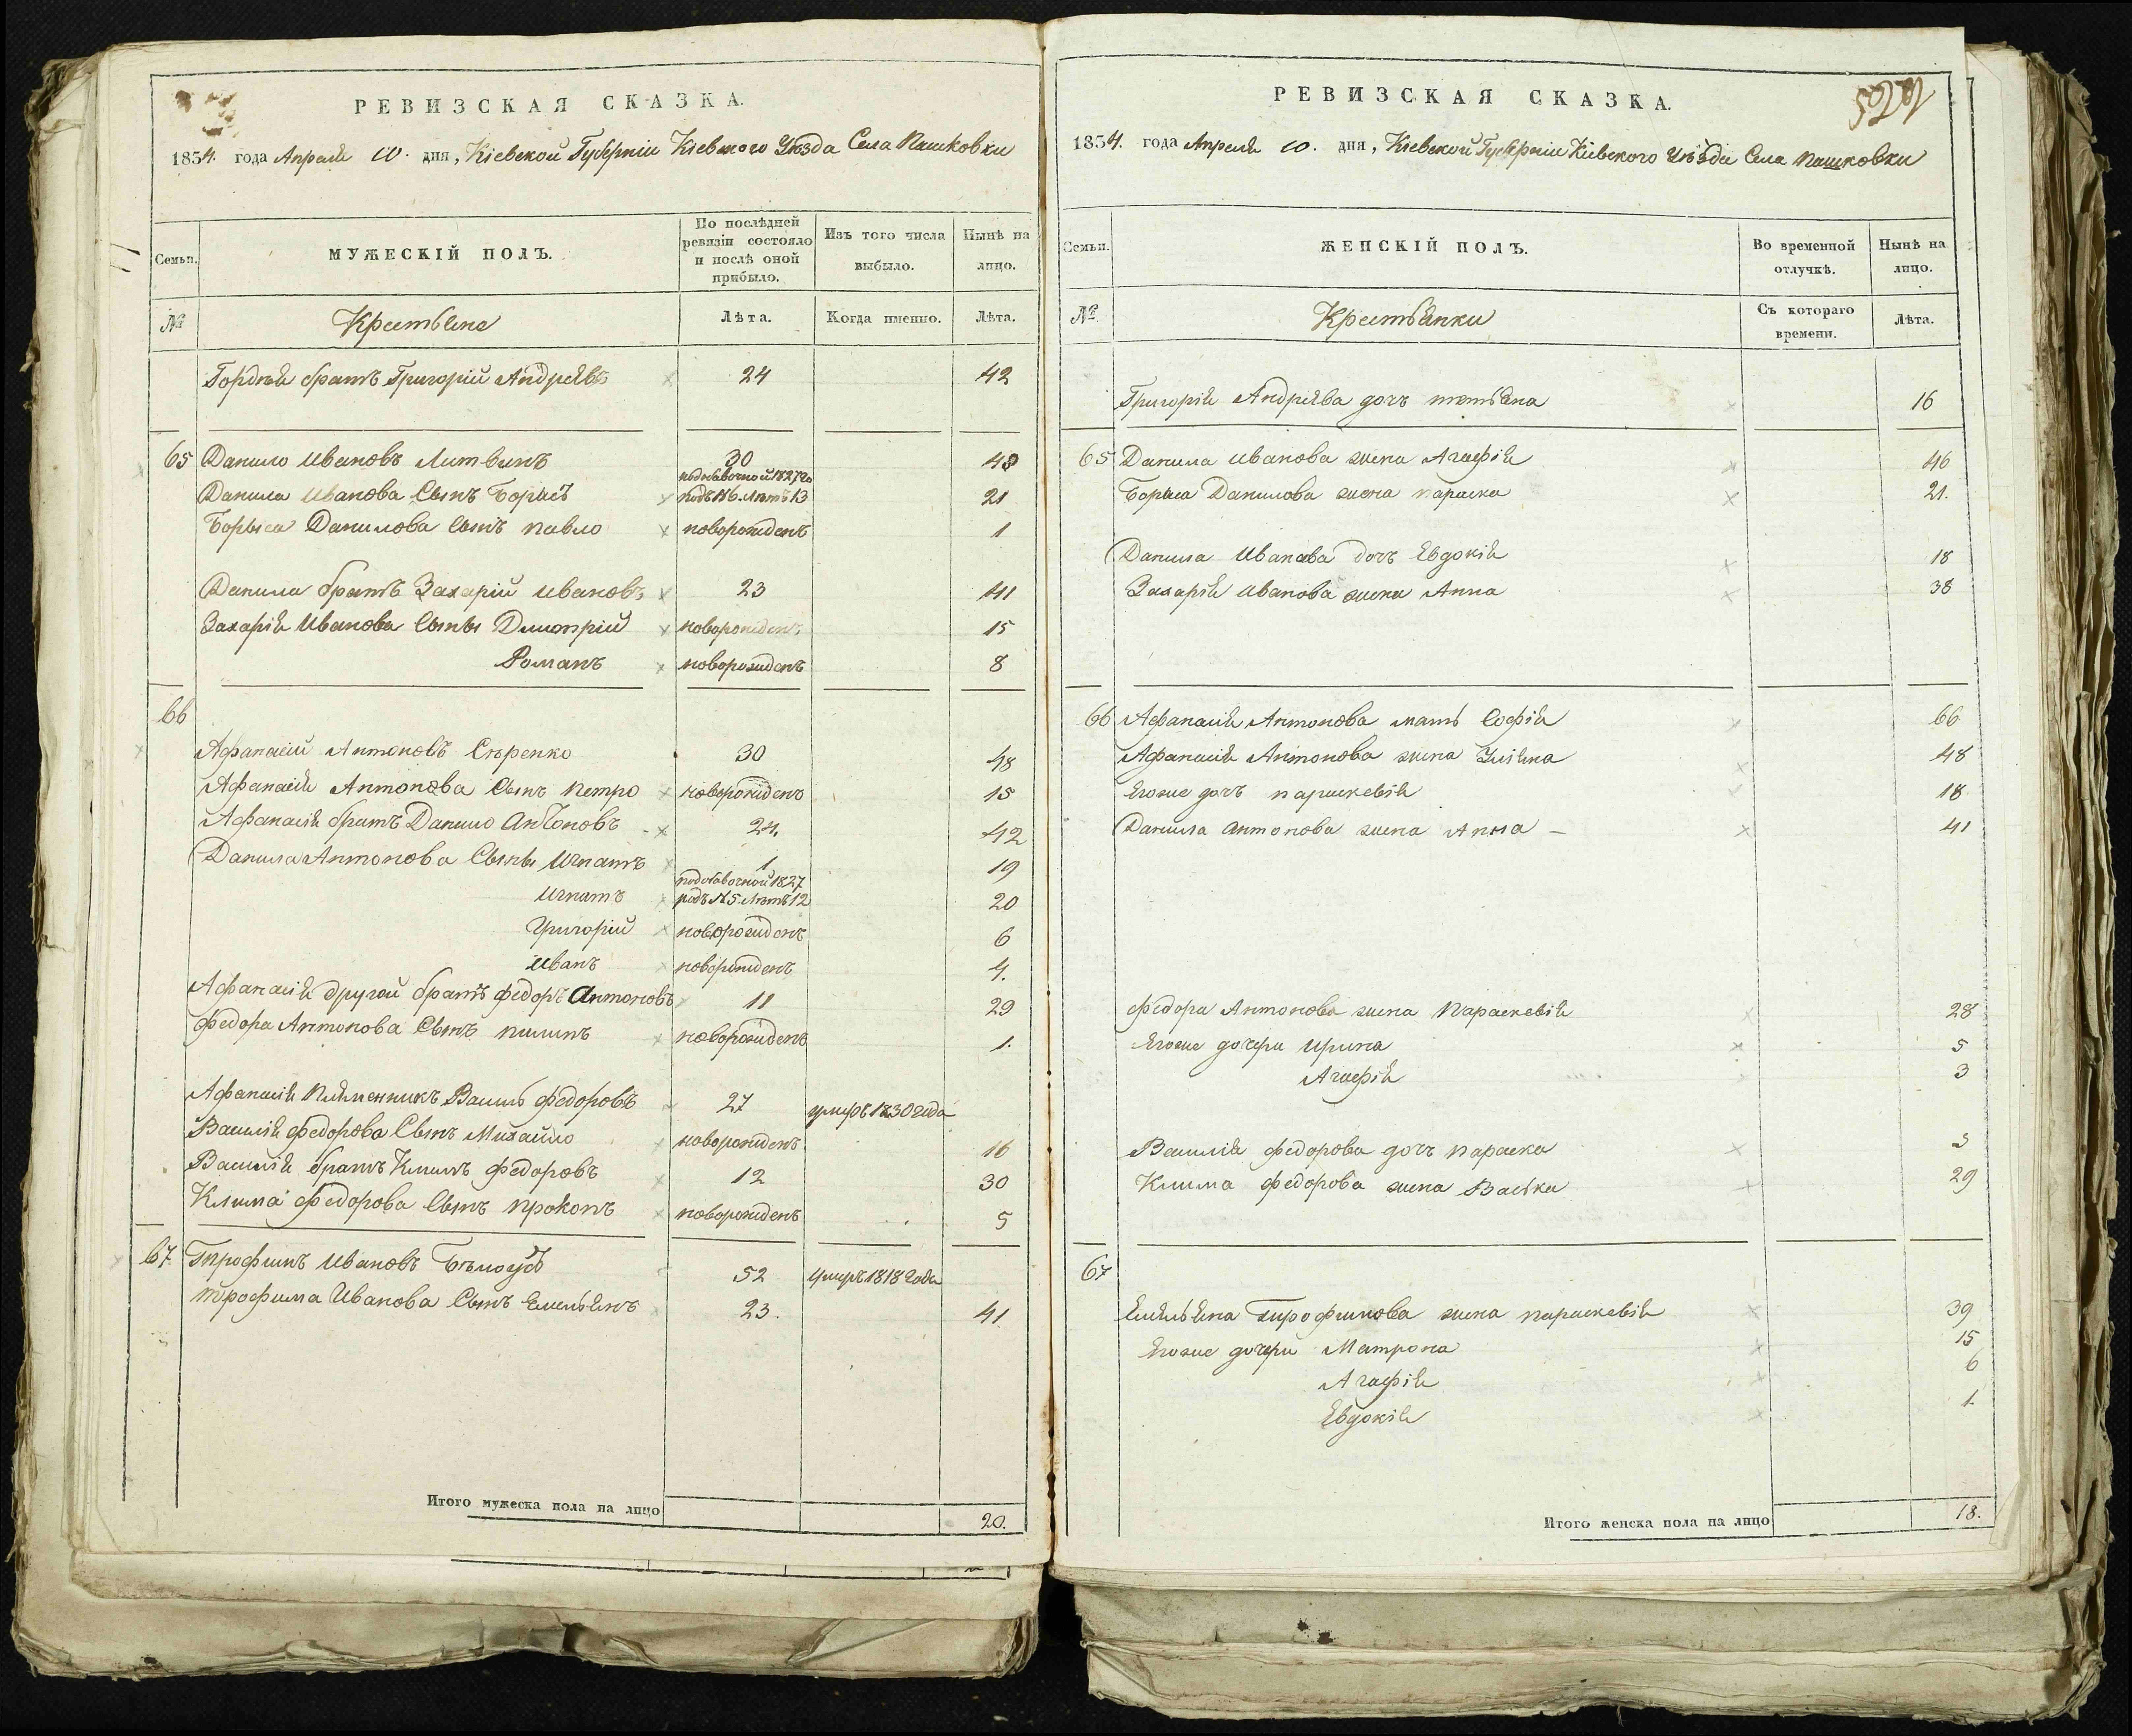 РЕВИЗСКАЯ СКАЗКА.
1854. года Апреля 10. дня, Кіевской Губерніи Кіевскаго Уѣзда Села Пашковки
Семьи.
МУЖЕСКІЙ ПОЛЪ.
По послѣдней ревизіи состояло и послѣ оной прибыло.
Изъ того числа выбыло.
Нынѣ на лицо.
№
Крестьяне
Лѣта.
Когда именно.
Лѣта.
Гордѣя братъ Григорій Андреявъ 24 42
65 Данило Ивановъ Литвинъ 30 48
Данила Иванова Сынъ Борисъ 21
подъ №6. Лѣтъ 13
Борыса Данилова Сынъ Павло новорожденъ 1
Данила братъ Захарій Ивановъ 23 41
Захарія Иванова Сыны Дмитрій новорожденъ 15
Романъ новорожденъ 8
66
Афанасій Антоновъ Сѣренко 30 48
Афанасія Антонова Сынъ Петро новорожденъ 15
Афанасія братъ Данило Антоновъ 24. 42
Данила Антонова Сыны Игнатъ 1 19
Игнатъ подъ №5. Лѣтъ 12 20
Григорій новорожденъ 6
Иванъ новорожденъ 4.
Афанасія другой братъ Федоръ Антоновъ 11 29
Федора Антонова Сынъ Пилипъ новорожденъ 1.
Афанасія Племенникъ Василь Федоровъ 27 умеръ 1830 года
Василія Федорова Сынъ Михайло новорожденъ 16
Василія братъ Климъ Федоровъ 12 30
Клима Федорова Сынъ Прокопъ новорожденъ 5
67 Трофимъ Ивановъ Бѣлоусъ 52
Трофима Иванова Сынъ Емельянъ 23. 41
Итого мужеска пола на лицо 20.
РЕВИЗСКАЯ СКАЗКА.
1854. года Апреля 10. дня, Кіевской Губерніи Кіевского Уѣзда Села Пашковки
Семьи.
ЖЕНСКІЙ ПОЛЪ.
Во временной отлучкѣ.
Нынѣ на лицо.
№
Крестьянки
Съ котораго времени.
Лѣта.
Григорія Андреява дочъ Тетьяна 16
65 Данила Иванова жена Агафія 46
Бориса Данилова жена Параска 21.
Данила Иванова дочъ Евдокія 18
Захарія Иванова жена Анна 38
66 Афанасія Антонова мать Софія 66
Афанасія Антонова жена Уліяна 48
Егоже дочъ Параскевія 18
Данила Антонова жена Анна 41
Федора Антонова жена Параскевія 28
Егоже дочери Ирина 5
Агафія 3
Василія Федорова дочъ Параска
Клима Федорова жена Васька 29
67
Емельяна Трофимова жена Параскевія 39
Егоже дочери Матрона 15
Агафія 6
Евдокія 1.
Итого женска пола на лицо 18.